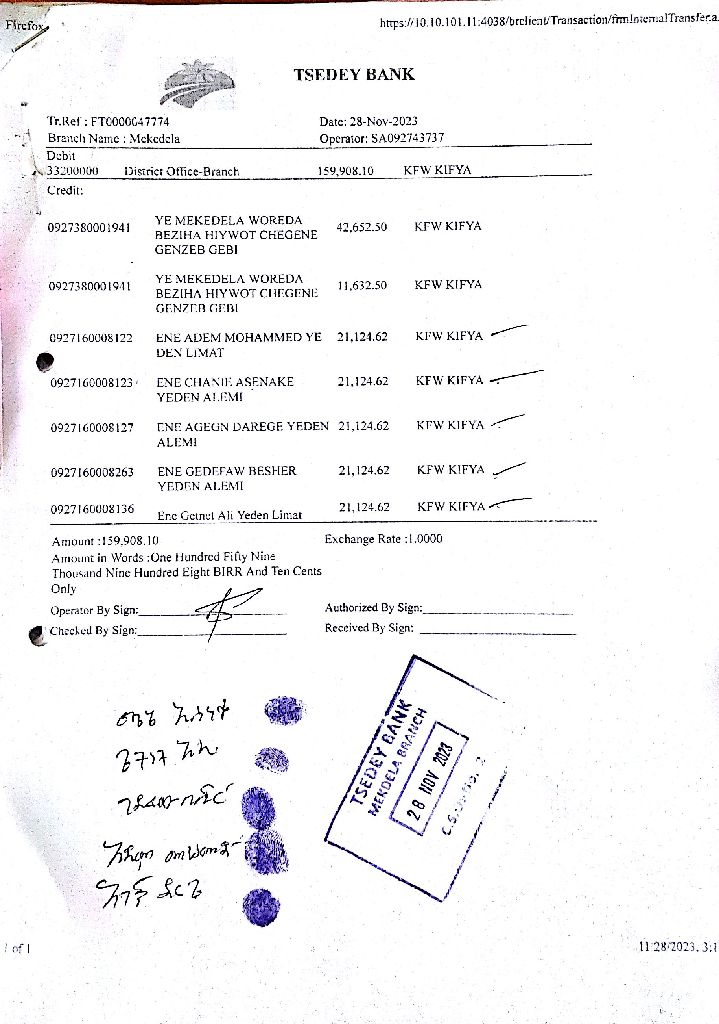 Firefox
https://10.10.101.11:4038/brclient/Transaction/frmInternalTransfer.a
TSEDEY BANK
Tr.Ref : FT0000047774 Date: 28-Nov-2023
Branch Name : Mekedela Operator: SA092743737
Debit
33200000 District Office-Branch 159,908.10 KFW KIFYA
Credit:
0927380001941 YE MEKEDELA WOREDA BEZIHA HIYWOT CHEGENE GENZEB GEBI 42,652.50 KFW KIFYA
0927380001941 YE MEKEDELA WOREDA BEZIHA HIYWOT CHEGENE GENZEB GEBI 11,632.50 KFW KIFYA
0927160008122 ENE ADEM MOHAMMED YE DEN LIMAT 21,124.62 KFW KIFYA
0927160008123 ENE CHANIE ASENAKE YEDEN ALEMI 21,124.62 KFW KIFYA
0927160008127 ENE AGEGN DAREGE YEDEN ALEMI 21,124.62 KFW KIFYA
0927160008263 ENE GEDEFAW BESHER YEDEN ALEMI 21,124.62 KFW KIFYA
0927160008136 Ene Getnet Ali Yeden Limat 21,124.62 KFW KIFYA
Amount :159,908.10 Exchange Rate :1.0000
Amount in Words :One Hundred Fifty Nine
Thousand Nine Hundred Eight BIRR And Ten Cents
Only
Operator By Sign: Authorized By Sign:
Checked By Sign: Received By Sign:
TSEDEY BANK
MEKDELA BRANCH
28 NOV 2023
11/28/2023, 3:1
of 1